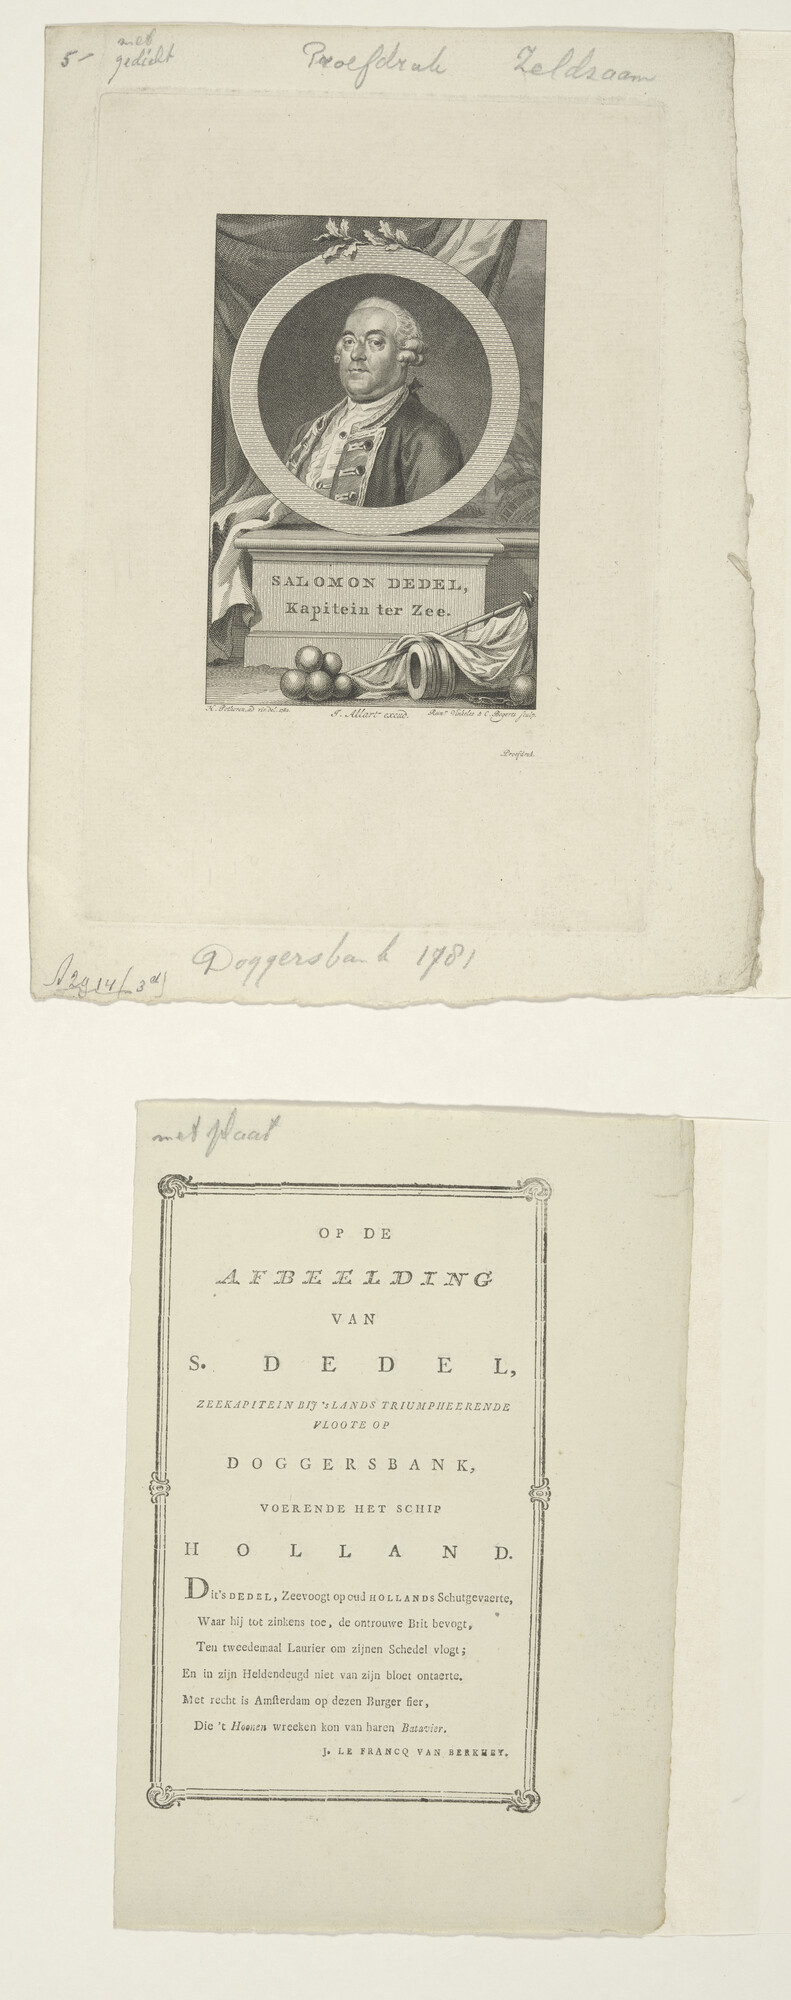 5- met
gedicht
Proefdruk Zeldzaam
SALOMON DEDEL,
Kapitein ter Zee.
H. Pothoven, ad viv. del. 1781.
J. Allart excud.
Reinr. Vinkeles & C. Bogerts sculp.
Proefdruk.
Doggersbank 1781
met plaat
OP DE
AFBEELDING
VAN
S. DEDEL,
ZEEKAPITEIN BIJ 'sLANDS TRIUMPHEERENDE
VLOOTE OP
DOGGERSBANK,
VOERENDE HET SCHIP
HOLLAND.
Dit's DEDEL, Zeevoogt op oud HOLLANDS Schutgevaerte,
Waar hij tot zinkens toe, de ontrouwe Brit bevogt,
Ten tweedemaal Laurier om zijnen Schedel vlogt;
En in zijn Heldendeugd niet van zijn bloet ontaerte.
Met recht is Amsterdam op dezen Burger fier,
Die 't Hoonen wreeken kon van haren Batavier.
J. LE FRANCQ VAN BERKHEY.